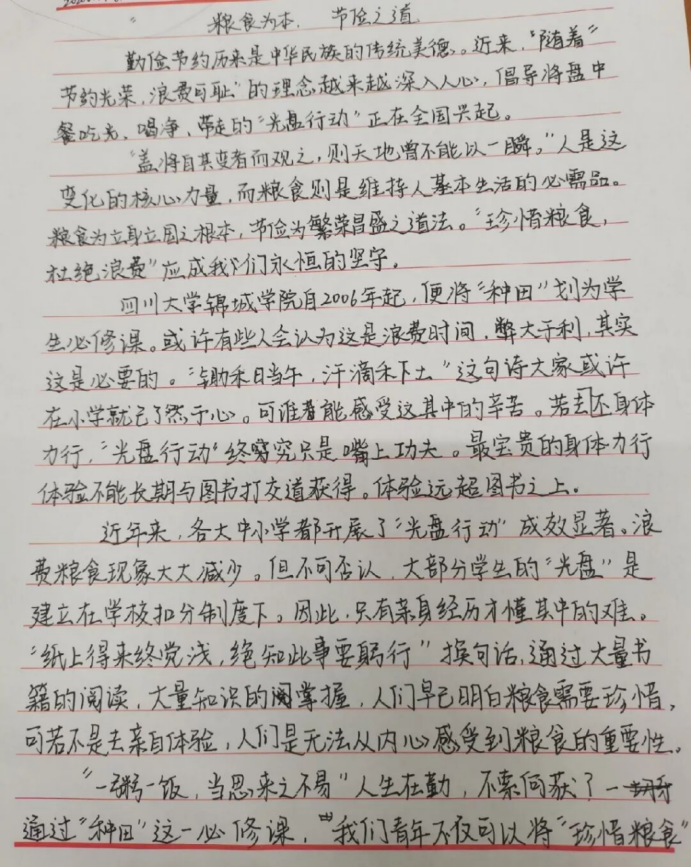 粮食为本，节俭之道
勤俭节约历来是中华民族的传统美德。近来，“随着”
节约光荣，浪费可耻”的理念越来越深入人心，倡导将盘中
餐吃光、喝净、带走的“光盘行动”正在全国兴起。
“盖将自其变者而观之，则天地曾不能以一瞬。”人是这
变化的核心力量，而粮食则是维持人基本生活的必需品。
粮食为立身立国之根本，节俭为繁荣昌盛之道法。“珍惜粮食，
杜绝浪费”应成我们永恒的坚守。
四川大学锦城学院自2006年起，便将“种田”划为学
生必修课。或许有些人会认为这是浪费时间，弊大于利，其实
这是必要的。“锄禾日当午，汗滴禾下土”这句诗大家或许
在小学就已了然于心。可谁能感受这其中的辛苦。若去不身体
力行，“光盘行动”终究只是嘴上功夫。最宝贵的身体力行
体验不能长期与图书打交道获得。体验远超图书之上。
近年来，各大中小学都开展了“光盘行动”成效显著。浪
费粮食现象大大减少。但不可否认，大部分学生的“光盘”是
建立在学校扣分制度下。因此，只有亲身经历才懂其中的难。
“纸上得来终觉浅，绝知此事要躬行”换句话，通过大量书
籍的阅读，大量知识的掌握，人们早已明白粮食需要珍惜，
可若不是去亲自体验，人们是无法从内心感受到粮食的重要性。
“一粥一饭，当思来之不易”人生在勤，不索何获？一
通过“种田”这一必修课，我们青年不仅可以将“珍惜粮食”